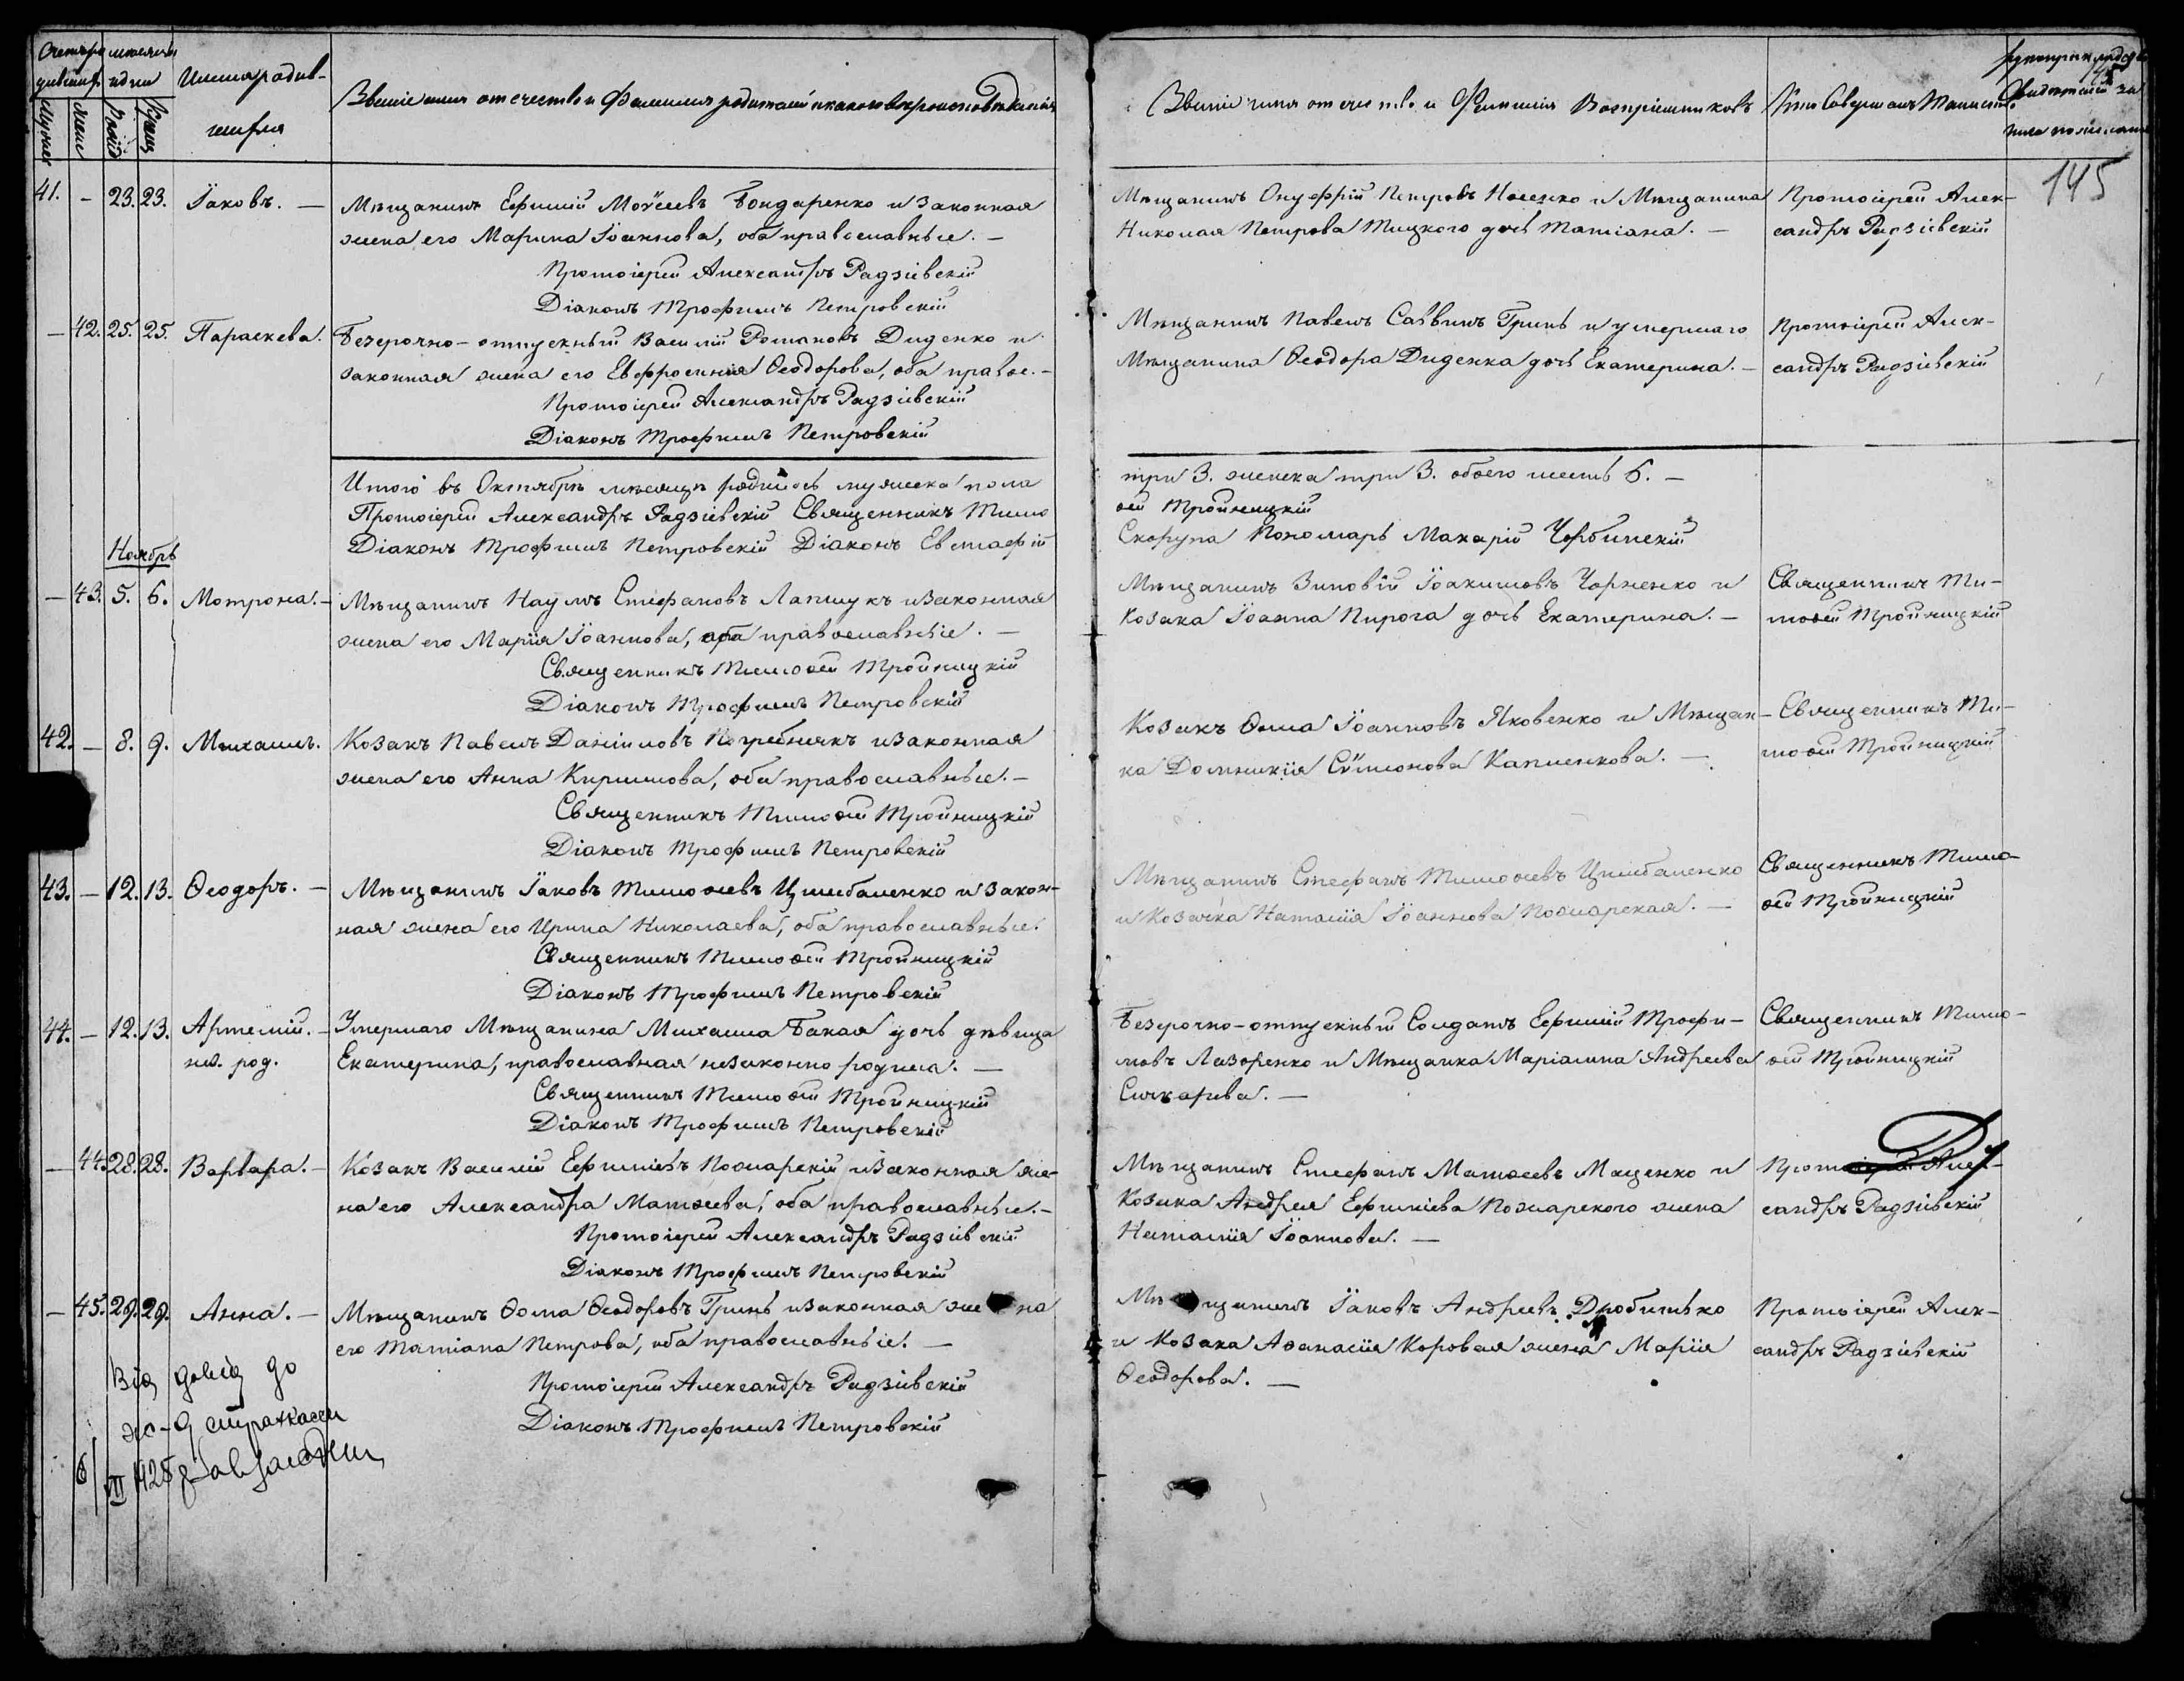 Имя родив-
шихся
Званіе имя отечество и Фамилия родителей и какого вероисповѣданія
Званіе имя отечество и Фамилія Воспріемниковъ
Кто Совершалъ Таинство
145
41. — 23. 23. Іаковъ. —
Мѣщанинъ Ефимій Моѵсеевъ Бондаренко и Законная
жена его Марина Іоаннова, оба православные. —
Протоіерей Александръ Радзіевскій
Діаконъ Трофимъ Петровскій
Мѣщанинъ Онуфрій Петровъ Носенко и Мѣщанина
Николая Петрова Тицкого дочь Татіана. —
Протоіерей Алек-
сандръ Радзіевскій
— 42. 25. 25. Параскева.
Безсрочно-отпускный Василій Романовъ Диденко и
законная жена его Евфросинія Ѳеодорова, оба правос. -
Протоіерей Александръ Радзіевскій
Діаконъ Трофимъ Петровскій
Мѣщанинъ Павелъ Саввинъ Гринь и умершаго
Мѣщанина Ѳеодора Диденка дочь Екатерина. —
Протоіерей Алек-
сандръ Радзіевскій
Итого въ Октябрѣ мѣсяцѣ родилось мужеска пола
три 3. женска три 3. обоего шесть 6. —
Протоіерей Александръ Радзіевскій Священникъ Тимо
ѳей Тройницкій
Діаконъ Трофимъ Петровскій Діаконъ Евстафій
Скорупа Пономарь Макарій Чербинскій
Ноябрь
— 43. 5. 6. Мотрона. —
Мѣщанинъ Наумъ Стефановъ Лапшукъ и Законная
жена его Марія Іоаннова, оба православные. —
Священникъ Тимоѳей Тройницкій
Діаконъ Трофимъ Петровскій
Мѣщанинъ Зиновій Іоакимовъ Чорненко и
Козака Іоанна Пирога дочь Екатерина. —
Священникъ Ти-
моѳей Тройницкій
42. — 8. 9. Михаилъ.
Козакъ Павелъ Даніиловъ Погребнякъ и Законная
жена его Анна Кириллова, оба православные. —
Священникъ Тимоѳей Тройницкій
Діаконъ Трофимъ Петровскій
Козакъ Ѳома Іоанновъ Яковенко и Мѣщан-
ка Домникія Сѵмеонова Капленкова. —
Священникъ Ти-
моѳей Тройницкій
43. — 12. 13. Ѳеодоръ. —
Мѣщанинъ Іаковъ Тимоѳеевъ Цимбаленко и Закон-
ная жена его Ирина Николаева, оба православные.
Священникъ Тимоѳей Тройницкій
Діаконъ Трофимъ Петровскій
Мѣщанинъ Стефанъ Тимоѳеевъ Цимбаленко
и Козачка Наталія Іоаннова Пожарская. —
Священникъ Тимо-
ѳей Тройницкій
44. — 12. 13. Артемій. —
нз. род.
Умершаго Мѣщанина Михаила Бакая дочь дѣвица
Екатерина, православная незаконно родила. —
Священникъ Тимоѳей Тройницкій
Діаконъ Трофимъ Петровскій
Безсрочно-отпускный Солдатъ Ефимій Трофи-
мовъ Лазоренко и Мѣщанка Маріамна Андреева
—
Священникъ Тимо-
ѳей Тройницкій
— 44. 28. 28. Варвара. —
Козакъ Василій Ефиміевъ Пожарскій и Законная же-
на его Александра Матѳеева, оба православные. —
Протоіерей Александръ Радзіевскій
Діаконъ Трофимъ Петровскій
Мѣщанинъ Стефанъ Матѳеевъ Маценко и
Козака Андрея Ефиміева Пожарского жена
Наталія Іоаннова. —
Протоіерей Алек-
сандръ Радзіевскій
— 45. 29. 29. Анна. —
Мѣщанинъ Ѳома Ѳеодоровъ Гринь и законная жена
его Татіана Петрова, оба православные. —
Протоіерей Александръ Радзіевскій
Діаконъ Трофимъ Петровскій
Мѣщанинъ Іаковъ Андреевъ Дробитько
и Козака Аѳанасія Коровая жена Марія
Ѳеодорова. —
Протоіерей Алек-
сандръ Радзіевскій
Від. довід. до
страхкасси
6/VII 1928